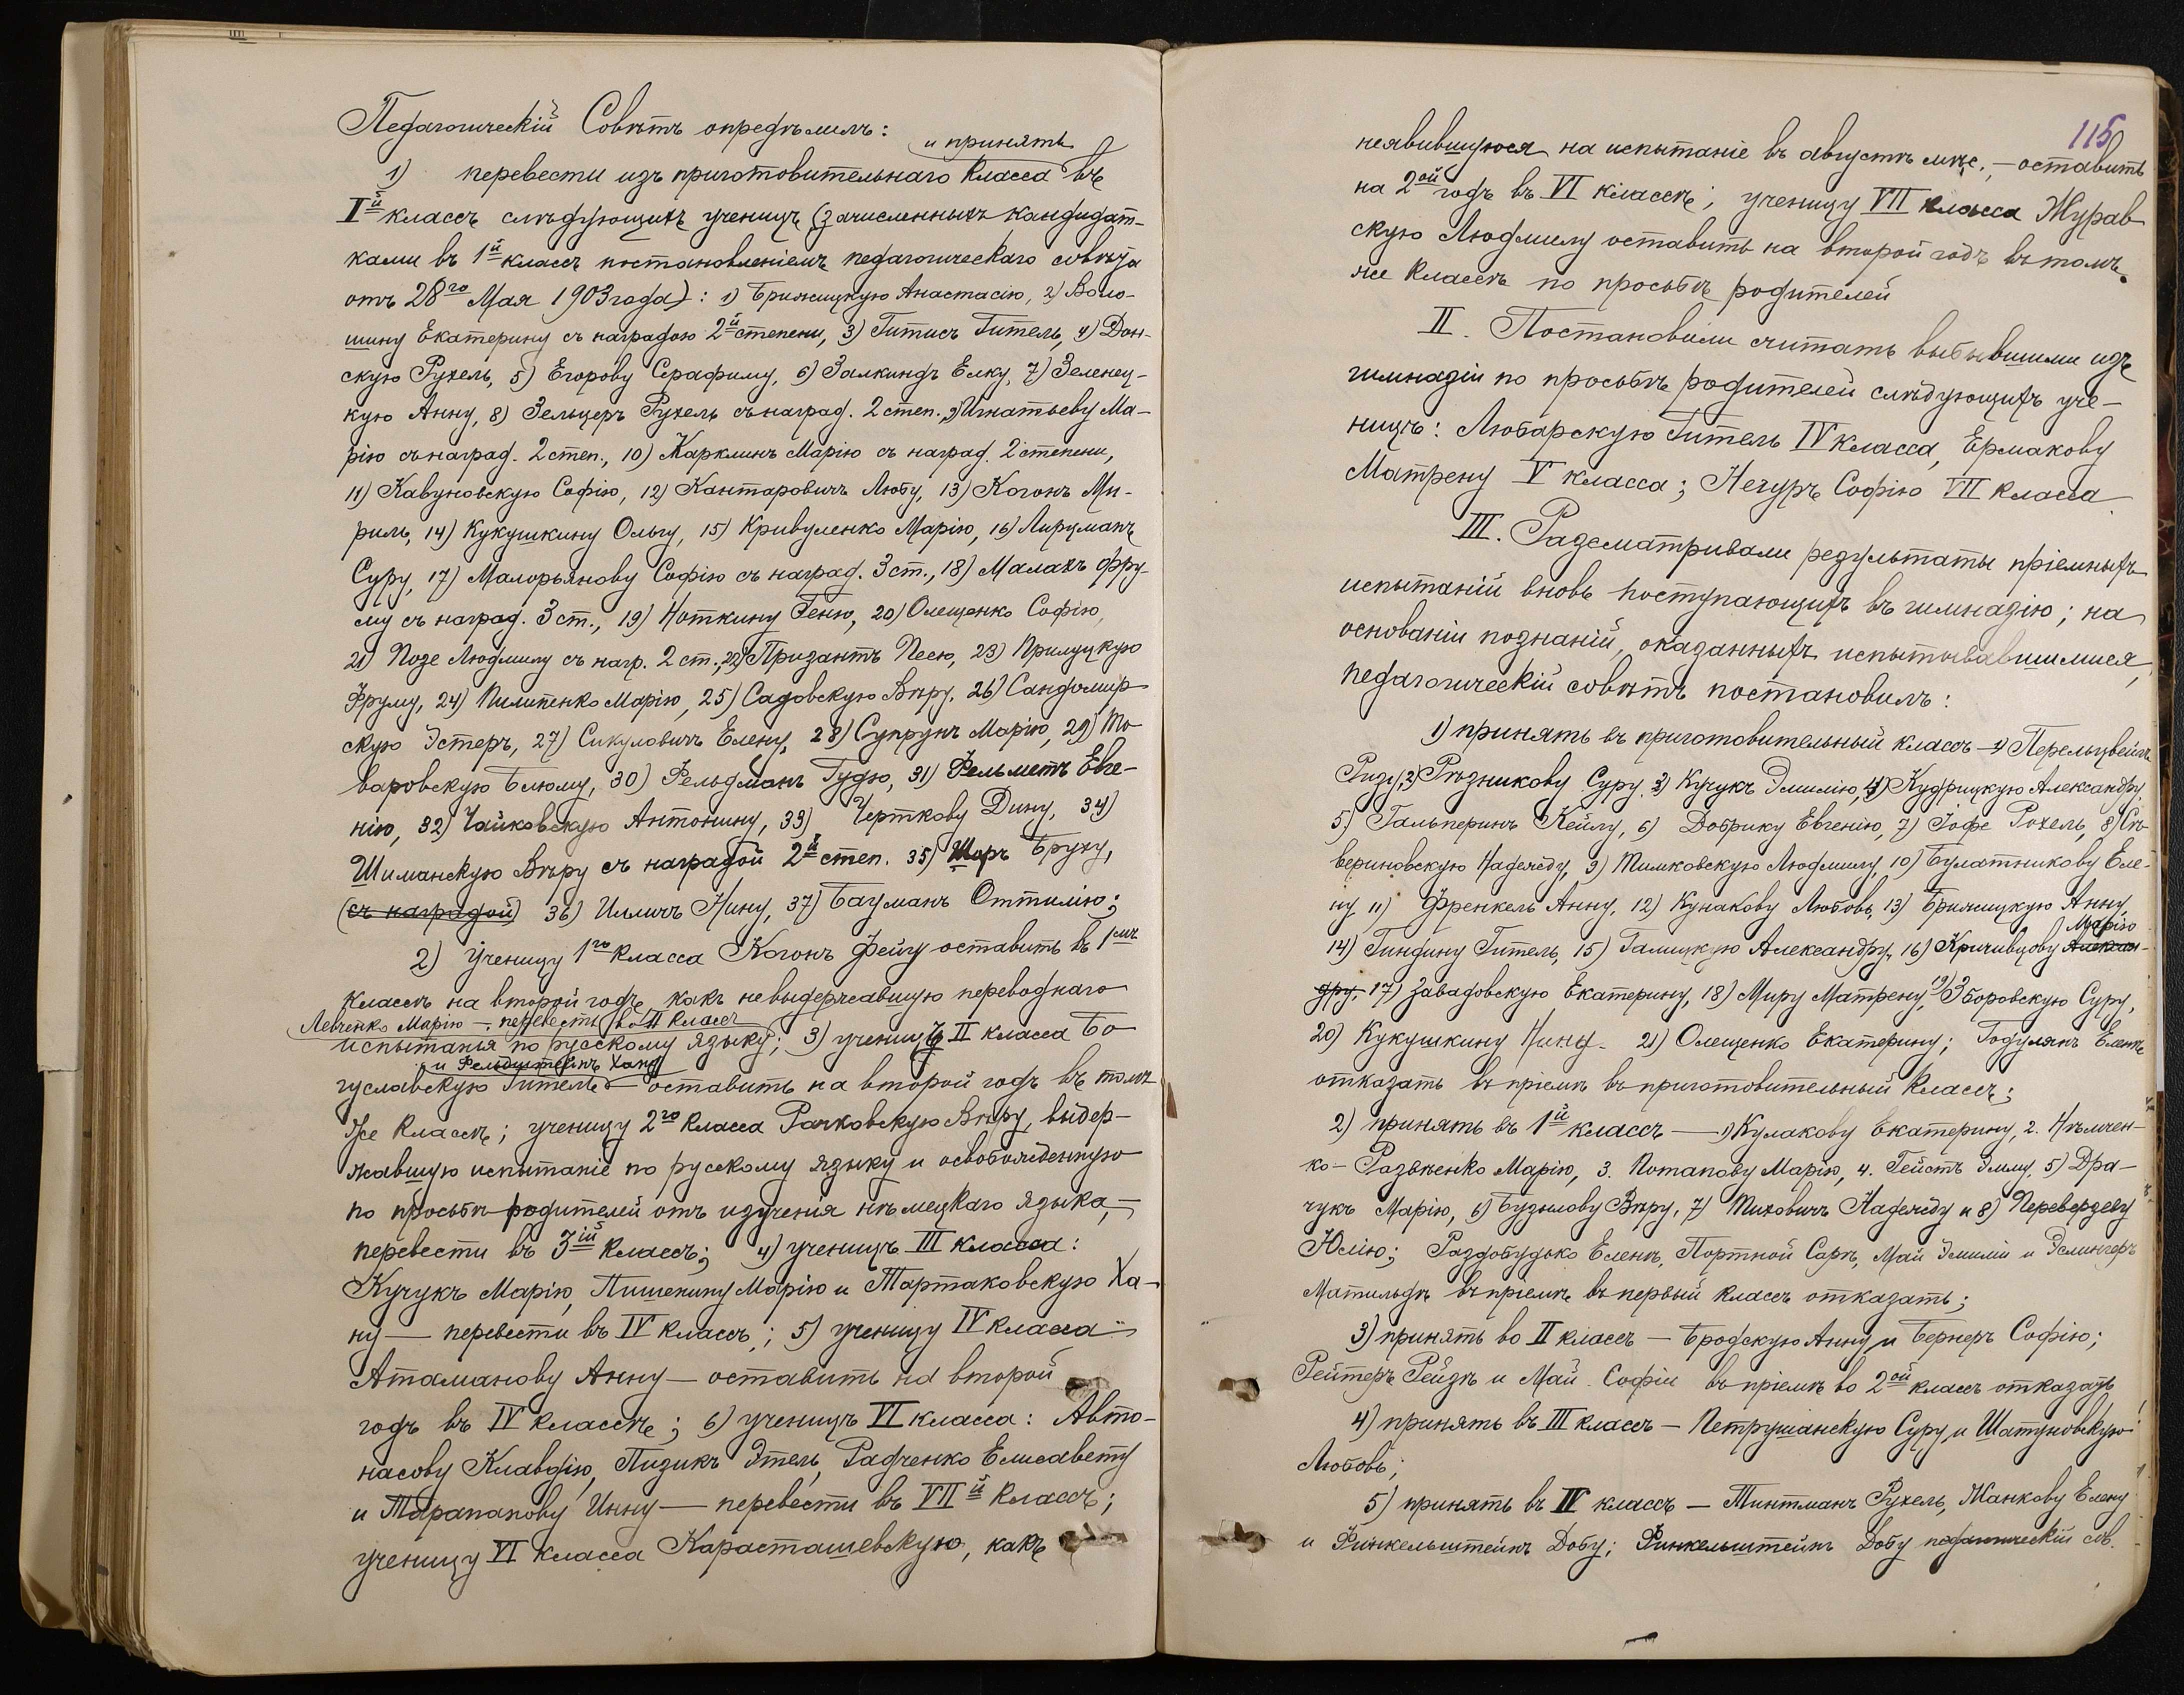 Педагогическій Совѣтъ опредѣлилъ:
и принять
1) перевести изъ приготовительнаго класса въ
Iй классъ слѣдующихъ ученицъ (зачисленныхъ кандидат-
ками въ 1й классъ постановленіемъ педагогическаго совѣта
отъ 28го Мая 1903 года): 1) Брижицкую Анастасію, 2) Воло-
шину Екатерину съ наградою 2й степени, 3) Гитисъ Гитель, 4) Дон-
скую Рухель, 5) Егорову Серафиму, 6) Залкиндъ Елку, 7) Зеленец-
кую Анну, 8) Зельцеръ Рухель съ наград. 2 степ., 9) Игнатьеву Ма-
рію съ наград. 2 степ., 10) Карклинъ Марію съ наград. 2 степени,
11) Кавуновскую Софію, 12) Кантаровичъ Любу, 13) Когонъ Ми-
риль, 14) Кукушкину Ольгу, 15) Кривуленко Марію, 16) Лируманъ
Суру, 17) Малорьянову Софію съ наград. 3 ст., 18) Малахъ Фру-
му съ наград. 3 ст., 19) Ноткину Геню, 20) Олещенко Софію,
21) Позе Людмилу съ нагр. 2 ст., 22) Призантъ Песю, 23) Прилуцкую
Фруму, 24) Пилипенко Марію, 25) Садовскую Вѣру, 26) Сандомир-
скую Эстеръ, 27) Сикуловичъ Елену, 28) Супрунъ Марію, 29) То-
варовскую Блюму, 30) Фельдманъ Гудю, 31) Фельметъ Евге-
нію, 32) Чайковскую Антонину, 33) Черткову Дину, 34)
Шиманскую Вѣру съ наградой 2й степ. 35) Шоръ Бруху,
(съ наградой) 36) Илличъ Нину, 37) Бауманъ Оттилію;
2) Ученицу 1го класса Когонъ Фейгу оставить въ 1мъ
классѣ на второй годъ, какъ невыдержавшую переводнаго
Левченко Марію — перевесть во II классъ
испытанья по русскому языку; 3) ученицъ II класса Бо-
и Фельдштейнъ Хану
гуславскую Гитель — оставить на второй годъ въ томъ
же классѣ; ученицу 2го класса Рачковскую Вѣру, выдер-
жавшую испытаніе по русскому языку и освобожденную
по просьбѣ родителей отъ изученія нѣмецкаго языка, —
перевести въ 3ій классъ; 4) ученицъ III класса:
Кучукъ Марію, Пшенкину Марію и Тартаковскую Ха-
ну — перевести въ IV классъ; 5) ученицу IV класса
Атаманову Анну — оставить на второй
годъ въ IV классѣ; 6) ученицъ VI класса: Авто-
насову Клавдію, Пизикъ Этель, Радченко Елисавету
и Тарапанову Инну — перевести въ VIIй классъ;
ученицу VI класса Карасташевскую, какъ
115
неявившуюся на испытаніе въ августѣ мѣс., — оставить
на 2ой годъ въ VI классѣ; ученицу VII класса Журав-
скую Людмилу оставить на второй годъ въ томъ
же классѣ по просьбѣ родителей
II. Постановили считать выбывшими изъ
гимназіи по просьбѣ родителей слѣдующихъ уче-
ницъ: Любарскую Гитель IV класса, Ермакову
Матрену V класса; Нечуръ Софію VII класса.
III. Разсматривали результаты пріемныхъ
испытаній вновь поступающихъ въ гимназію; на
основаніи познаній, оказанныхъ испытывавшимися,
педагогическій совѣтъ постановилъ:
1) принять въ приготовительный классъ — 1) Перельцвейгъ
Ризу, 2) Рѣзникову Суру, 3) Кучукъ Эмилію, 4) Кудрицкую Александру,
5) Гальперинъ Кейлу, 6) Добрику Евгенію, 7) Іофе Рохель, 8) Сѣ-
вериновскую Надежду, 9) Тимковскую Людмилу, 10) Булатникову Еле-
ну, 11) Френкель Анну, 12) Кунакову Любовь, 13) Брижицкую Анну,
Марію
14) Гиндину Гитель, 15) Галицкую Александру, 16) Кричивцову Алексан-
дру, 17) Завадовскую Екатерину, 18) Миру Матрену, 19) Зборовскую Суру,
20) Кукушкину Нину. 21) Олещенко Екатерину; Годулянъ Еленѣ
отказать въ пріемѣ въ приготовительный классъ;
2) принять въ 1й классъ — 1) Кулакову Екатерину, 2. Нѣмчен-
ко-Развѣенко Марію, 3. Потапову Марію, 4. Гейстъ Эмму, 5) Дра-
чукъ Марію, 6) Бузылову Вѣру, 7) Тиховичъ Надежду и 8) Перевердеву
Юлію; Раздобудько Еленѣ, Портной Сарѣ, Май Эмиліи и Эслингеръ
Матильдѣ въ пріемѣ въ первый классъ отказать;
3) принять во II классъ — Бродскую Анну и Бернеръ Софію;
Рейтеръ Рейзѣ и Май Софіи въ пріемѣ во 2ой классъ отказать;
4) принять въ III классъ — Петрушанскую Суру и Шатуновскую
Любовь;
5) принять въ IV классъ — Тинтманъ Рухель, Жанкову Елену
и Финкельштейнъ Добу; Финкельштейнъ Добу педагогическій сов.